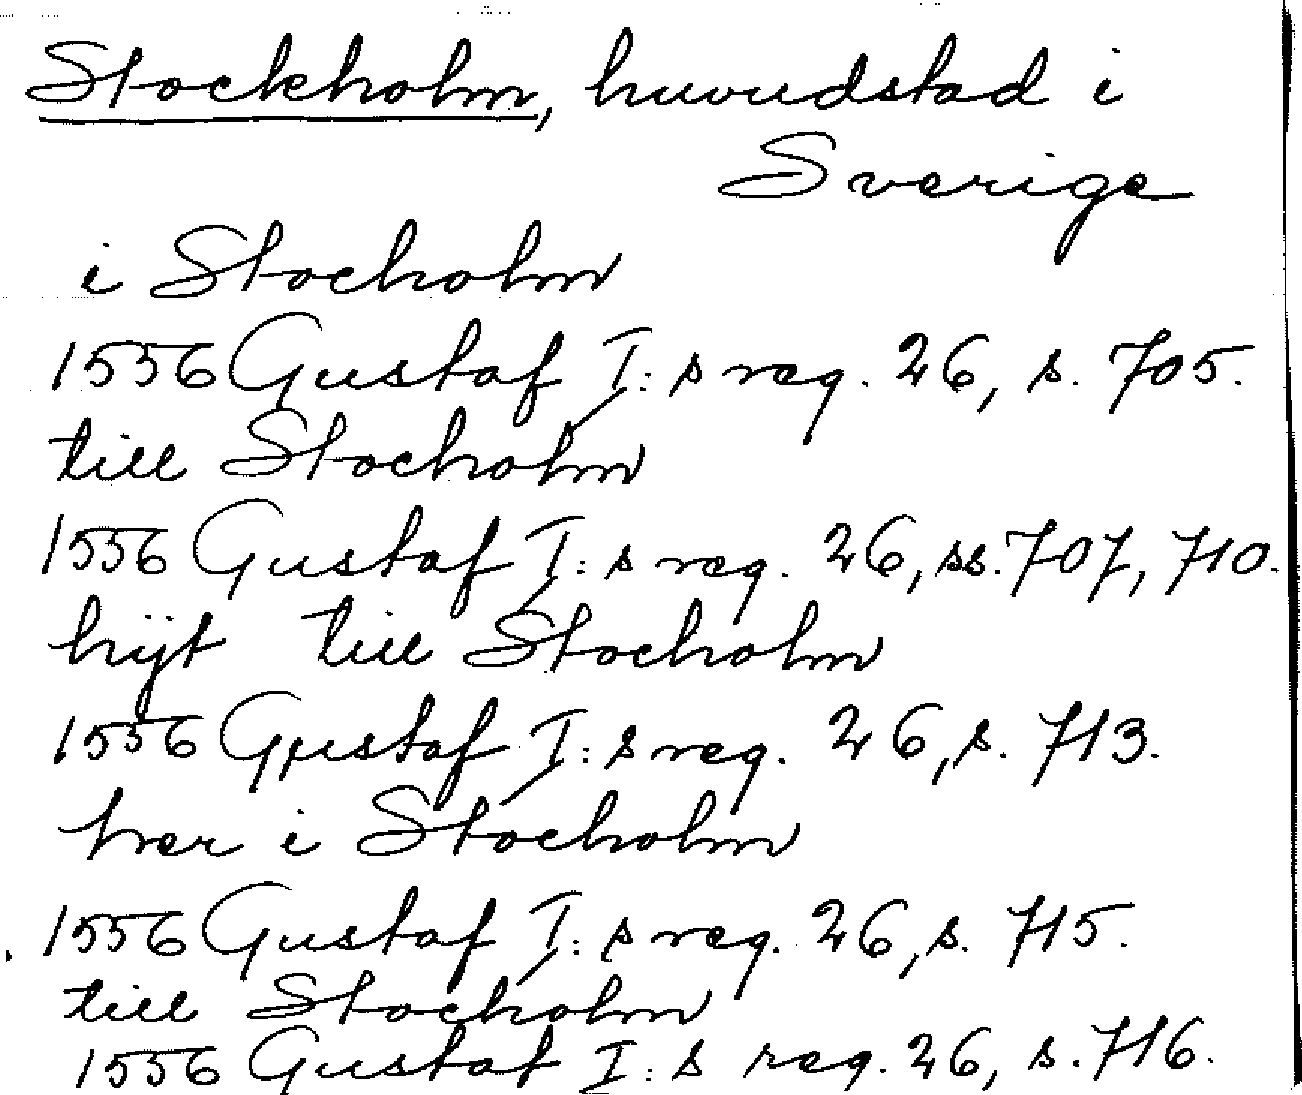 Stockholm, huvudstad i
Sverige
i Stocholm
1556 Gustaf I:s reg. 26, s. 705.
till Stocholm
1556 Gustaf I:s reg. 26, ss. 707, 710.
hijt till Stocholm
1556 Gustaf I:s reg. 26, s. 713.
her i Stocholm
1556 Gustaf I:s reg. 26, s. 715.
till Stocholm
1556 Gustaf I:s reg. 26, s. 716.